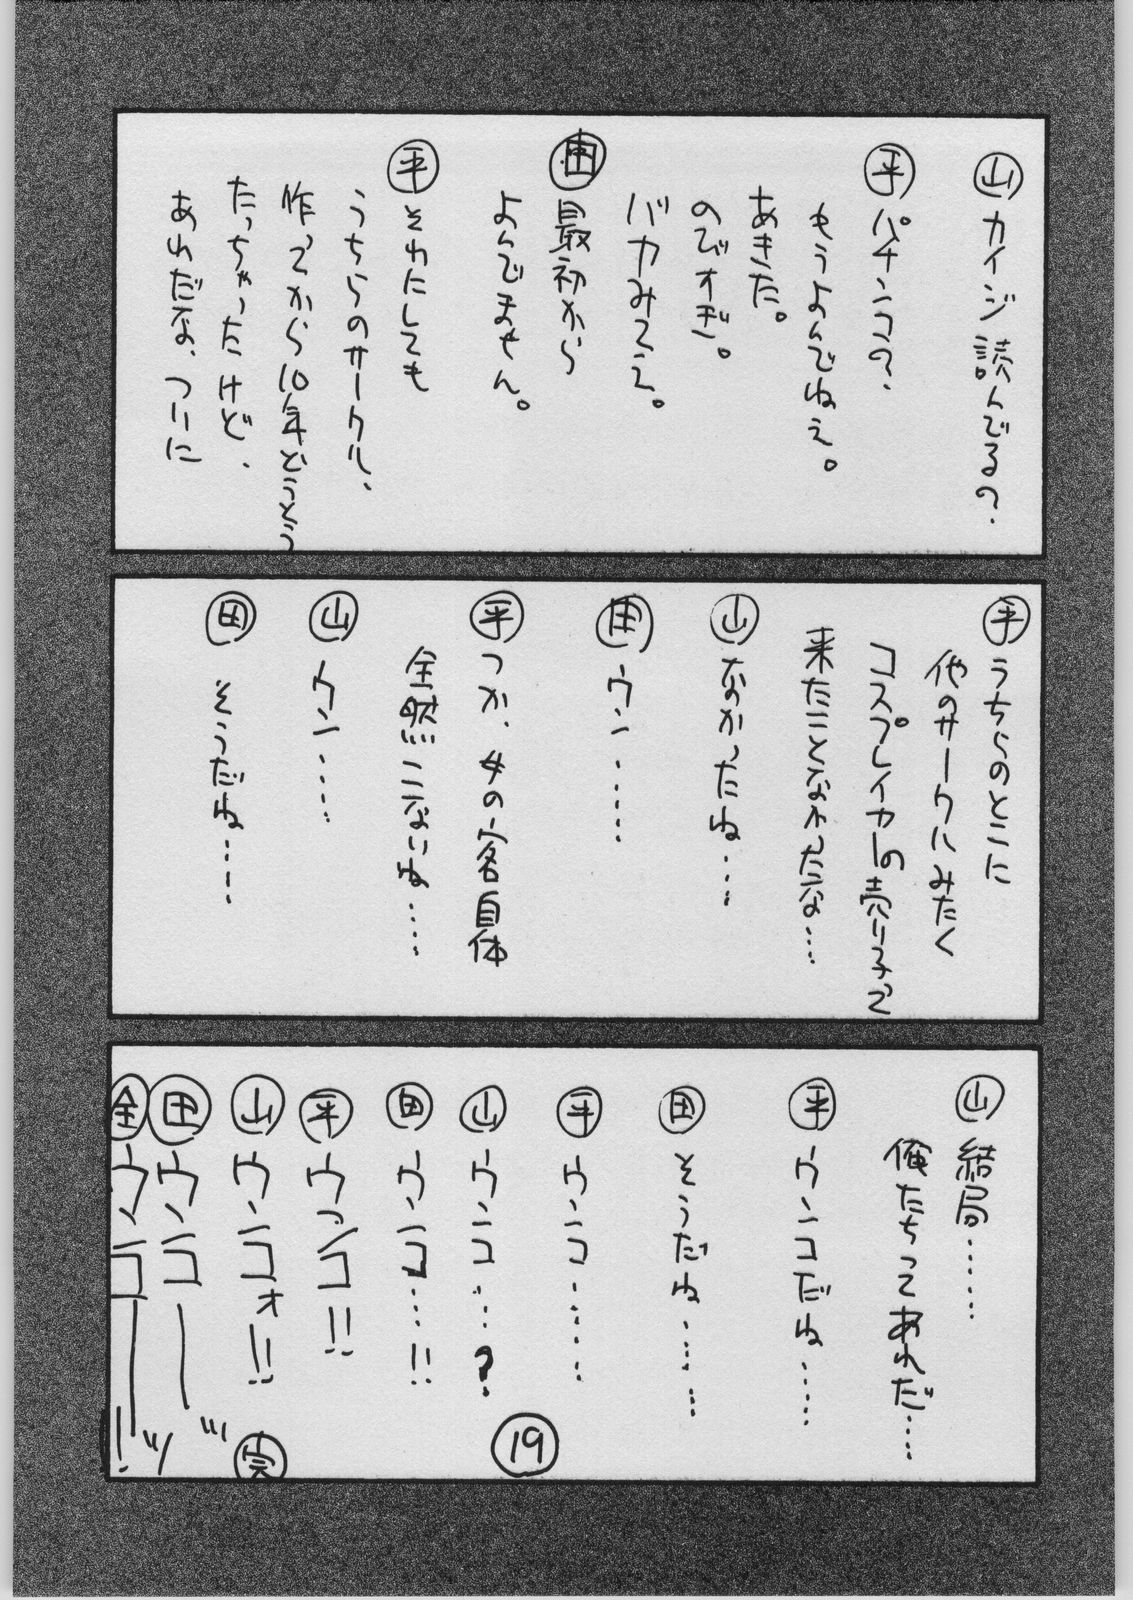 山 カイジ読んでるの?
平 パチンコの?
もうよんでねぇ。
あきた。
のびすぎ。
バカみてえ。
田 最初から
よんでません。
平 それにしても
うちらのサークル、
作ってから10年とうとう
たっちゃったけど、
あれだな、ついに
平 うちらのとこに
他のサークルみたく
コスプレイヤーの売り子って
来たことなかったな…
山 なかったね……
田 ウン……
平 つか、女の客自体
全然こないね……
山 ウン……
田 そうだね……
山 結局……
俺たちってあれだ……
平 ウンコだね……
田 そうだね……
平 ウンコ……
山 ウンコ…?
田 ウンコ…!!
平 ウンコ!!
山 ウンコォ!!
田 ウンコーーッ
全 ウンコーーッ!
完
19